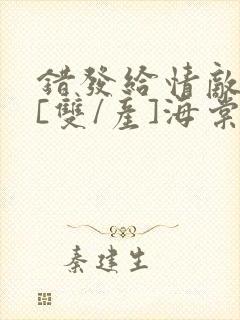 錯發給情敵
[雙/產]海棠
秦建生